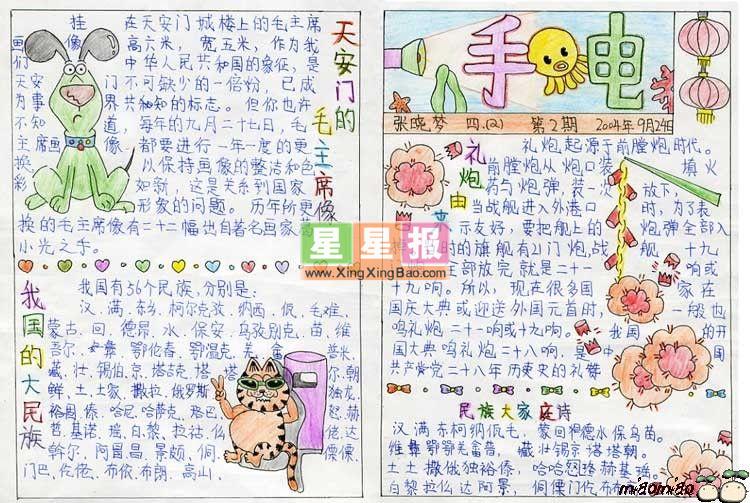 手电
张晓梦 四.(2) 第2期 2004年9月24日
天安门的毛主席像
挂 在天安门城楼上的毛主席
画像高六米，宽五米，作为我
们 中华人民共和国的象征，是
天安 门不可缺少的一部份，已成
为事 界共和知的标志。但你也许
不知 道，每年的九月二十七日，毛
主席画 像都要进行一年一度的更
换. 以保持画像的整洁和色
彩 如新，这是关系到国家
形象的问题。历年所更
换的毛主席像有二十二幅出自著名画家葛
小光之手。
我国的大民族
我国有56个民族，分别是：
汉.满.东乡.柯尔克孜.纳西.佤.毛难.
蒙古.回.德昂.水.保安.乌孜别克.苗.维
吾尔.彝.鄂伦春.鄂温克.
藏.壮.锡伯.京.塔吉克.塔 塔 尔.朝
鲜.土.土家.撒拉.俄罗斯 独龙.
裕固.傣.哈尼.哈萨克. 怒.赫
哲.基诺.瑶.白.黎.拉祜. 佬.达
斡尔.阿昌.景颇.侗. 傈僳.
门巴.仡佬.布依.布朗.高山.
礼炮由来
礼炮起源于前膛炮时代。
前膛炮从炮口装 填火
药与炮弹，装一 放下，
当战舰进入外港口 时，为了表
示友好，要把舰上的 炮弹全部入
时的旗舰有21门炮，战 舰 十九
全部放完就是二十一 响或
十九响。所以，现在很多国 家在
国庆大典或迎送外国元首时， 一般也
鸣礼炮二十一响或十九响。我国 的开
国大典鸣礼炮二十八响，是 中国
共产党二十八年历史史的礼赞
民族大家庭诗
汉满东柯纳佤毛，蒙回德水保乌苗。
维彝鄂鄂羌畲普，藏壮锡京塔塔朝。
土土撒俄独裕傣，哈哈怒珞赫基瑶。
白黎拉仫达阿景，侗傈门仡布布
星星报
www.XingXingBao.com
miaomiao